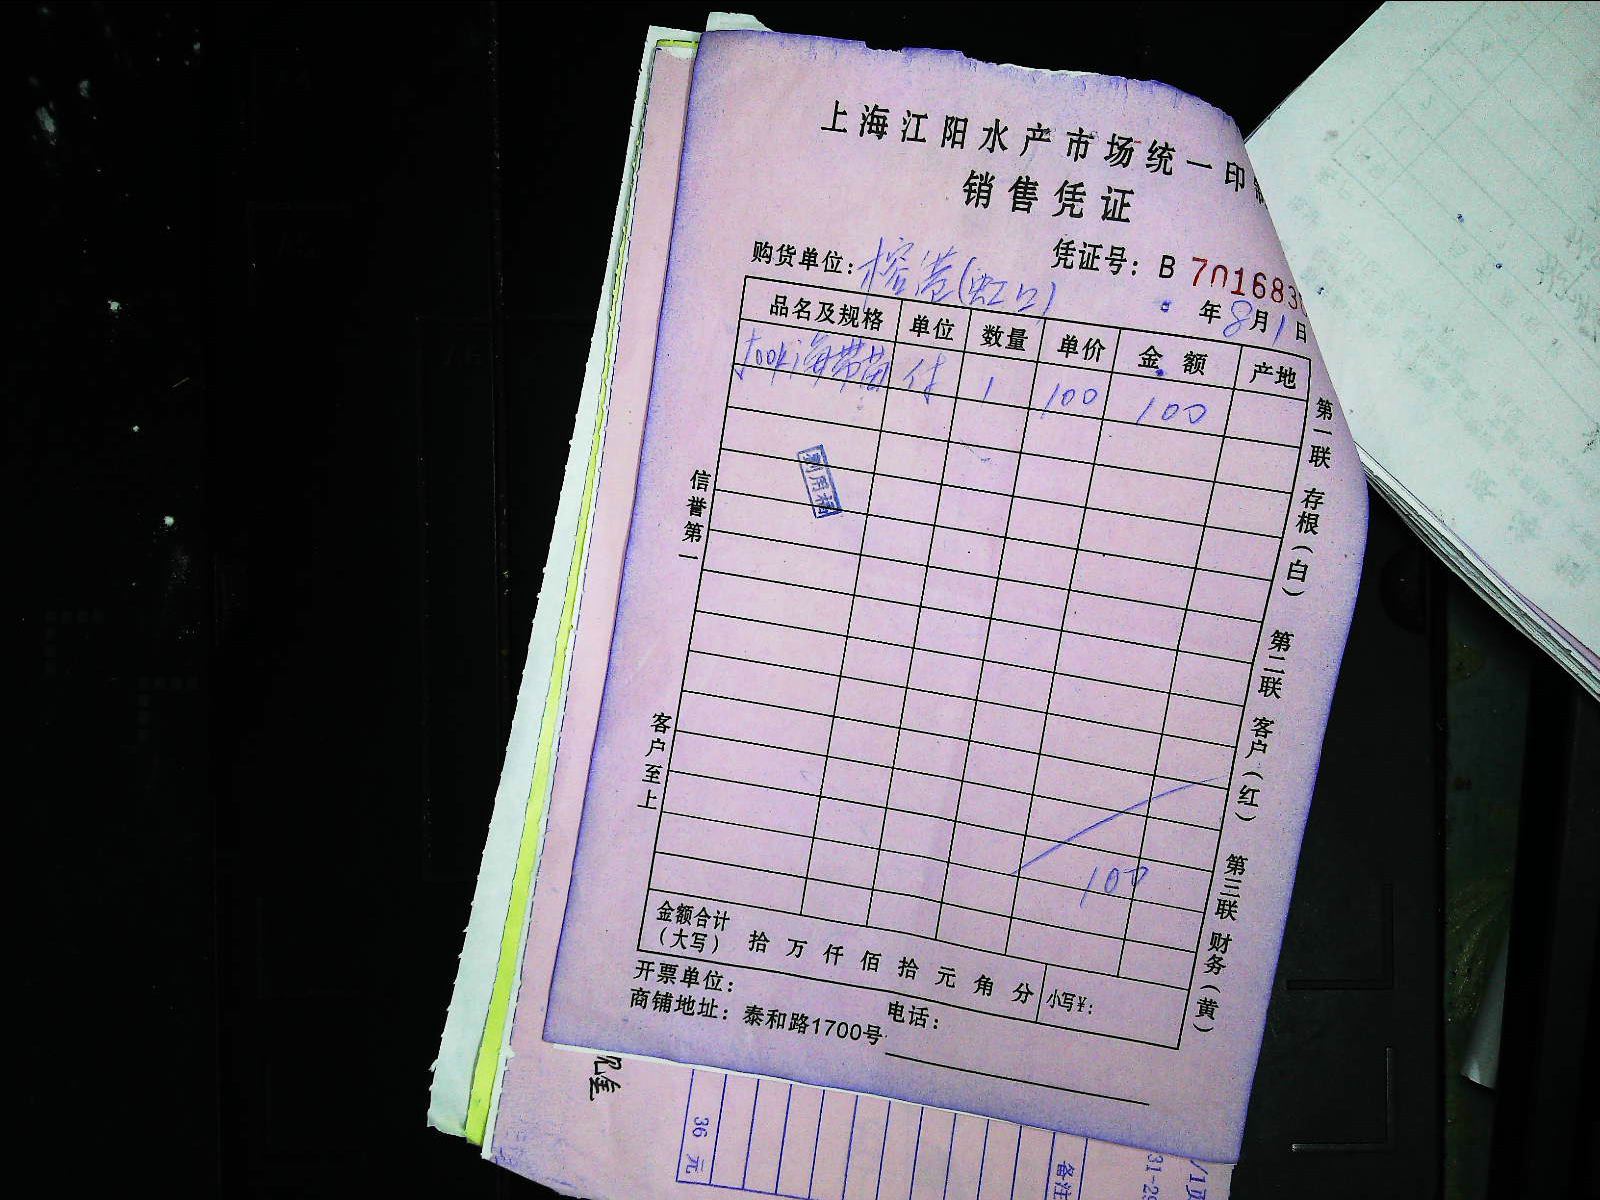 上海江阳水产市场统一印
销售凭证
购货单位：榕港(虹口)
凭证号：B 701683
年8月1日
品名及规格 单位 数量 单价 金额 产地
海带苗 付 1 100 100
100
金额合计（大写） 拾 万 仟 佰 拾 元 角 分 小写¥：
开票单位：
电话：
商铺地址：泰和路1700号
信誉第一
客户至上
第一联 存根（白）
第二联 客户（红）
第三联 财务（黄）
36 元
备注